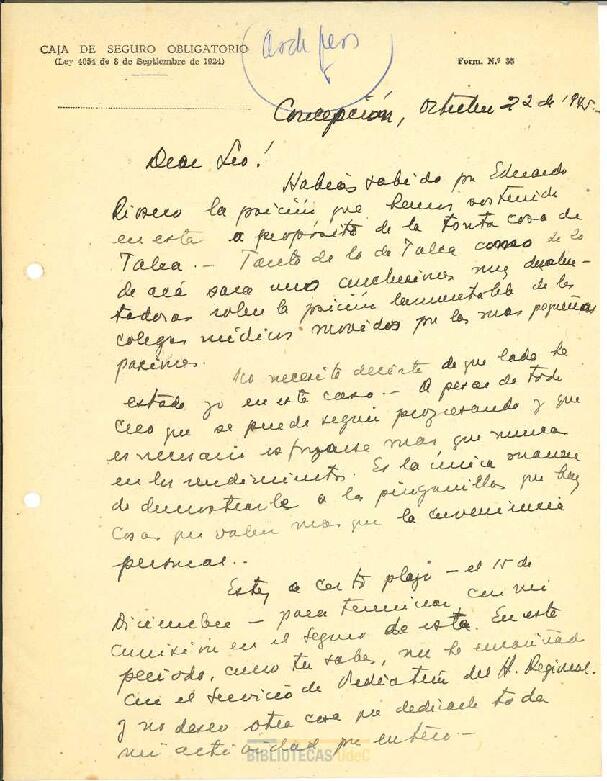 CAJA DE SEGURO OBLIGATORIO
(Ley 4054 de 8 de Septiembre de 1924)
Form. N.º 35
Concepción, Octubre 22 de 1945
Dear Leo!
Habrás sabido por Eduardo
Rivero la posición que hemos sostenido
en esta a propósito de la tonta cosa de
Talca. — Tanto de lo de Talca como de lo
de acá saco unas conclusiones muy desalen-
tadoras sobre la posición lamentable de los
colegas médicos movidos por las mas pequeñas
pasiones.
No necesito decirte de que lado he
estado yo en este caso. — A pesar de todo
creo que se puede seguir progresando y que
es necesario esforzarse mas que nunca
en los rendimientos. Es la única manera
de demostrarle a los pinganillas que hay
cosas que valen mas que la conveniencia
personal..
Estoy a corto plazo — el 15 de
Diciembre — para terminar con mi
comisión en el Seguro de esta. En este
período, como tu sabes, me he encariñado
con el Servicio de Pediatría del H. Regional
y no deseo otra cosa que dedicarle toda
mi actividad por entero —
BIBLIOTECAS UdeC